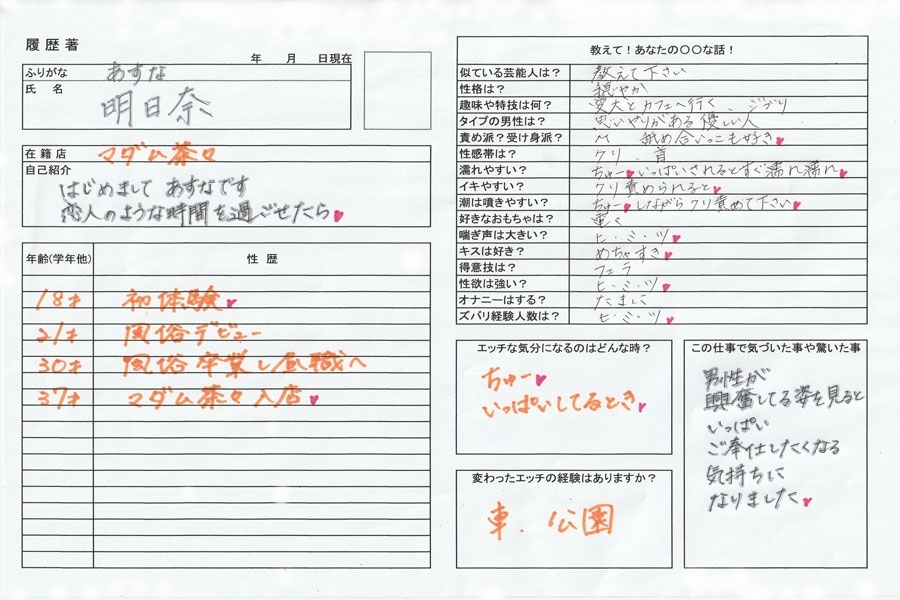 履歴著
年 月 日現在
ふりがな あすな
氏 名 明日奈
在籍店 マダム茶々
自己紹介
はじめまして あすなです
恋人のような時間を過ごせたら♥
年齢(学年他) 性歴
18才 初体験♥
21才 風俗デビュー
30才 風俗卒業し昼職へ
37才 マダム茶々入店♥
教えて！あなたの〇〇な話！
似ている芸能人は？ 教えて下さい
性格は？ 穏やか
趣味や特技は何？ 愛犬とカフェへ行く、ジブリ
タイプの男性は？ 思いやりがある優しい人
責め派？受け身派？ M 舐め合いっこも好き♥
性感帯は？ クリ、首
濡れやすい？ ちゅー♥いっぱいされるとすぐ濡れ濡れ♥
イキやすい？ クリ責められると♥
潮は噴きやすい？ ちゅー♥しながらクリ責めて下さい♥
好きなおもちゃは？
喘ぎ声は大きい？ ヒ・ミ・ツ♥
キスは好き？ めちゃすき♥
得意技は？ フェラ
性欲は強い？ ヒ・ミ・ツ♥
オナニーはする？ たまに
ズバリ経験人数は？ ヒ・ミ・ツ♥
エッチな気分になるのはどんな時？
ちゅー♥
いっぱいしてるとき♥
変わったエッチの経験はありますか？
車、公園
この仕事で気づいた事や驚いた事
男性が
興奮してる姿を見ると
いっぱい
ご奉仕したくなる
気持ちに
なりました♥